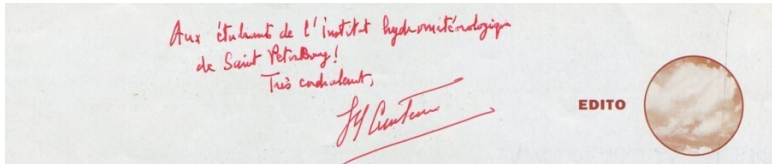 Aux étudiants de l'institut hydrométéorologique
de Saint Petersbourg!
Très cordialement,
EDITO